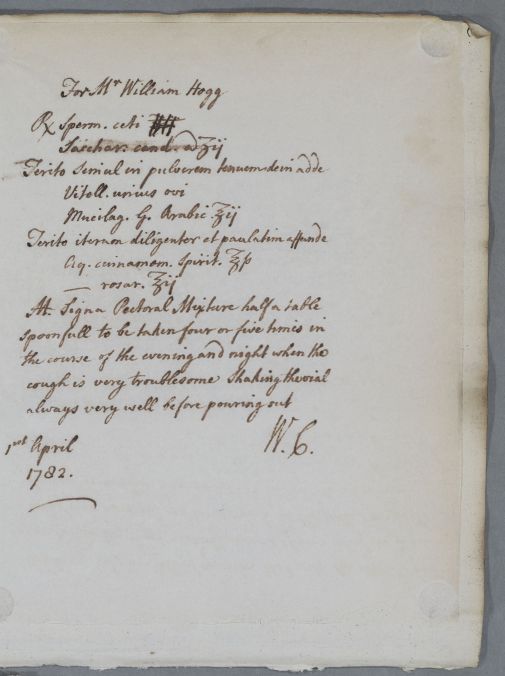 For Mr William Hogg
℞ Sperm. ceti
Sacchar. cand. aa ʒij
Terito simul in pulverem tenuem dein adde
Vitell. unius ovi
Mucilag. G. Arabic ℥ij
Terito iterum diligenter et paulatim affunde
Aq. cinnamom. Spirit. ℥ß
— rosar. ℥ij
M. Signa Pectoral Mixture half a table
spoonfull to be taken four or five times in
the course of the evening and night when the
cough is very troublesome Shaking the vial
always very well before pouring out
W. C.
April
1782.